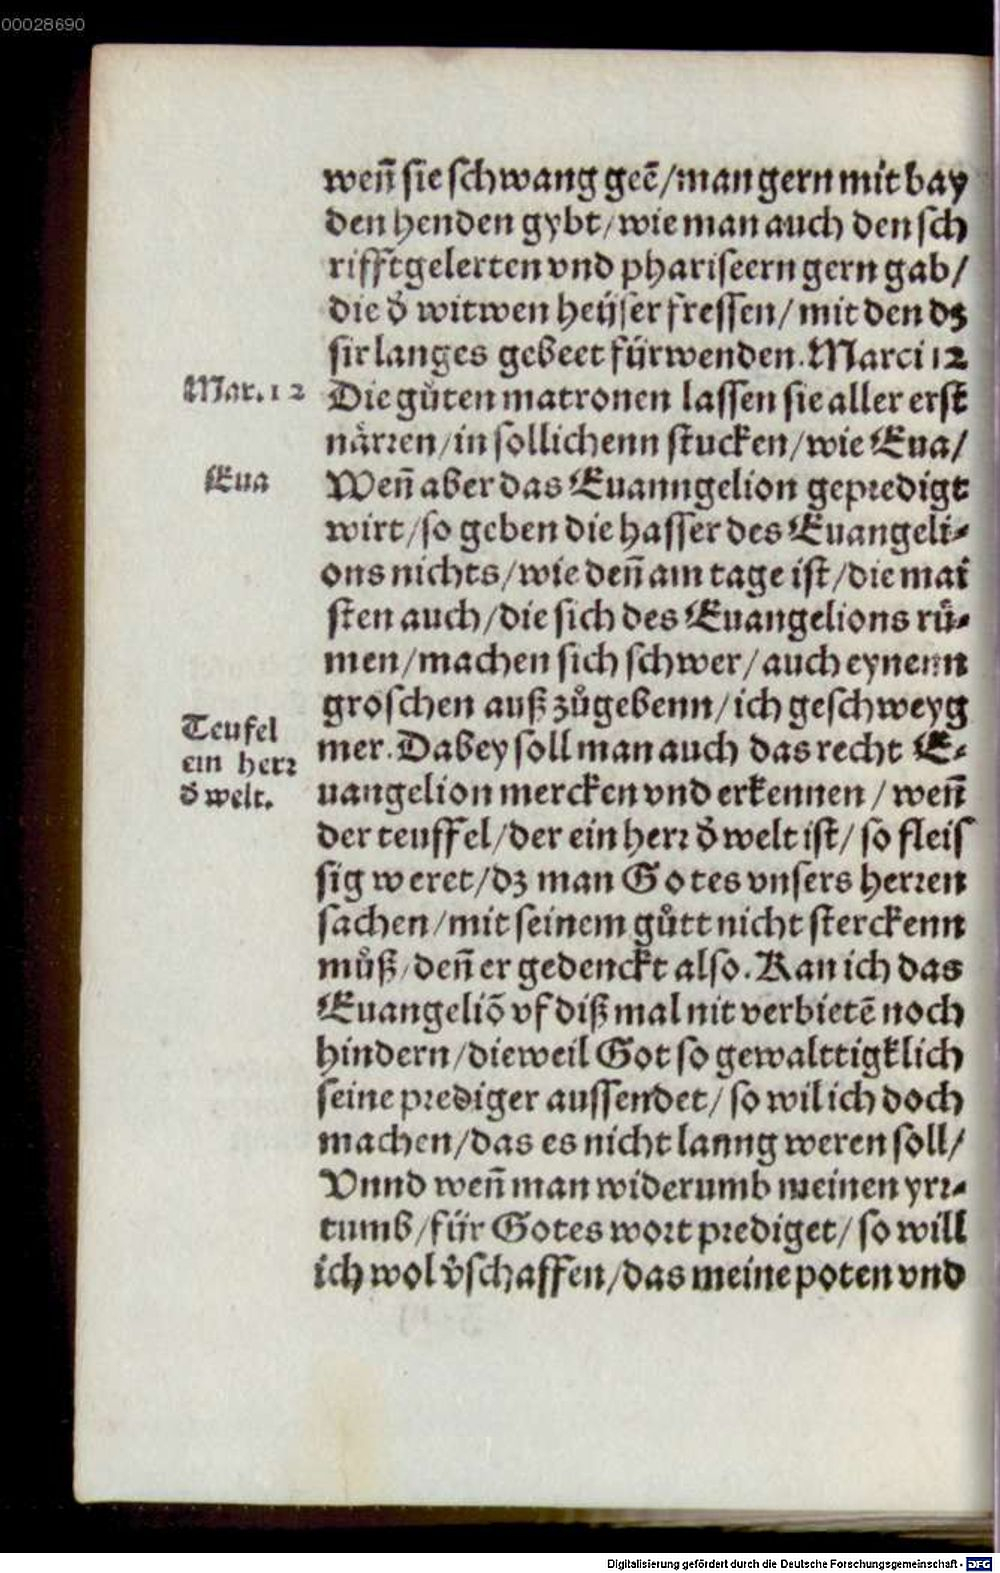 00028690
weñ sie schwang geẽ/man gern mit bay
den henden gybt/wie man auch den sch
rifftgelerten vnd phariseern gern gab/
die ð witwen heÿser fressen/mit den dz
sir langes gebeet fürwenden. Marci 12
Mar. 12
Die gůten matronen lassen sie aller erst
närren/in sollichenn stucken/wie Eua/
Eua
Weñ aber das Euanngelion gepredigt
wirt/so geben die hasser des Euangeli-
ons nichts/wie deñ am tage ist/die mai
sten auch/die sich des Euangelions rů-
men/machen sich schwer/auch eynenn
groschen auß zůgebenn/ich geschweyg
Teufel
ein herr
ð welt.
mer. Dabey soll man auch das recht E-
uangelion mercken vnd erkennen/weñ
der teuffel/der ein herr ð welt ist/so fleis
sig weret/dz man Gotes vnsers herren
sachen/mit seinem gůtt nicht sterckenn
můß/deñ er gedenckt also. Kan ich das
Euangeliõ vf diß mal nit verbietẽ noch
hindern/dieweil Got so gewalttigklich
seine prediger aussendet/so wil ich doch
machen/das es nicht lanng weren soll/
Vnnd weñ man widerumb meinen yrr-
tumb/für Gotes wort prediget/so will
ich wol v̊schaffen/das meine poten vnd
Digitalisierung gefördert durch die Deutsche Forschungsgemeinschaft - DFG